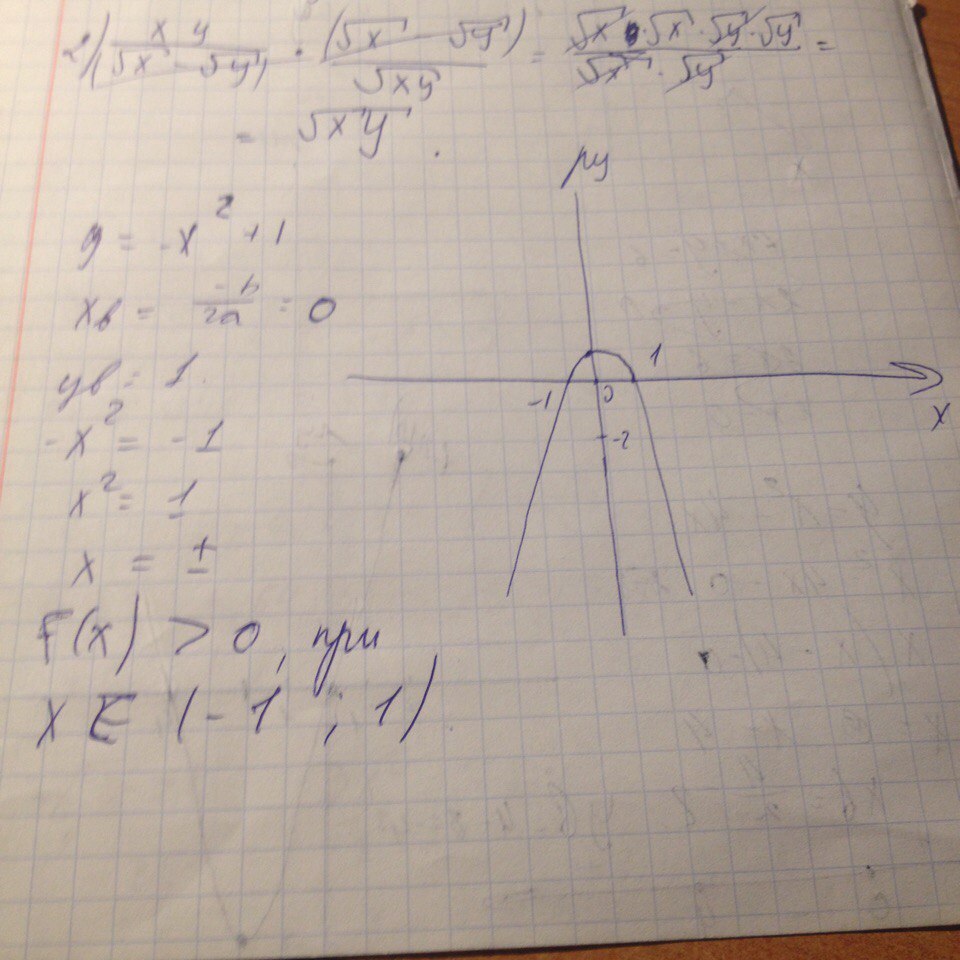 2) xy/(√x - √y) · (√x - √y)/√xy = √x · √x · √y · √y/√x · √y =
= √xy.
y = -x² + 1
xв = -b/2a = 0
yв = 1.
-x² = -1
x² = 1
x = ±
F(x) > 0, при
x ∈ (-1 ; 1)
y
1
-1
0
-2
x